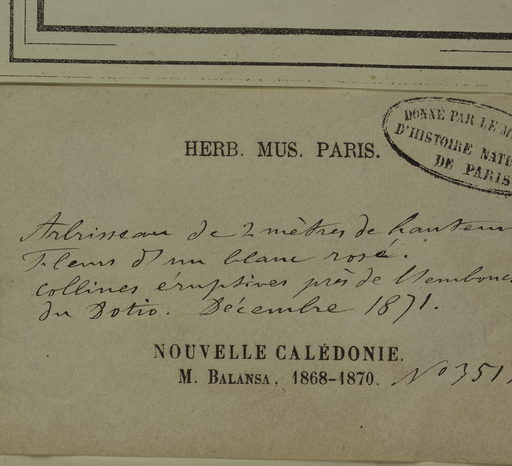 HERB. MUS. PARIS.
DONNÉ PAR LE M
D'HISTOIRE NATI
DE PARIS
Arbrisseau de 2 mètres de hauteur
Fleurs d'un blanc rosé.
collines éruptives près de l'embouc
du Dotio. Décembre 1871.
NOUVELLE CALÉDONIE.
M. BALANSA, 1868-1870. No 351